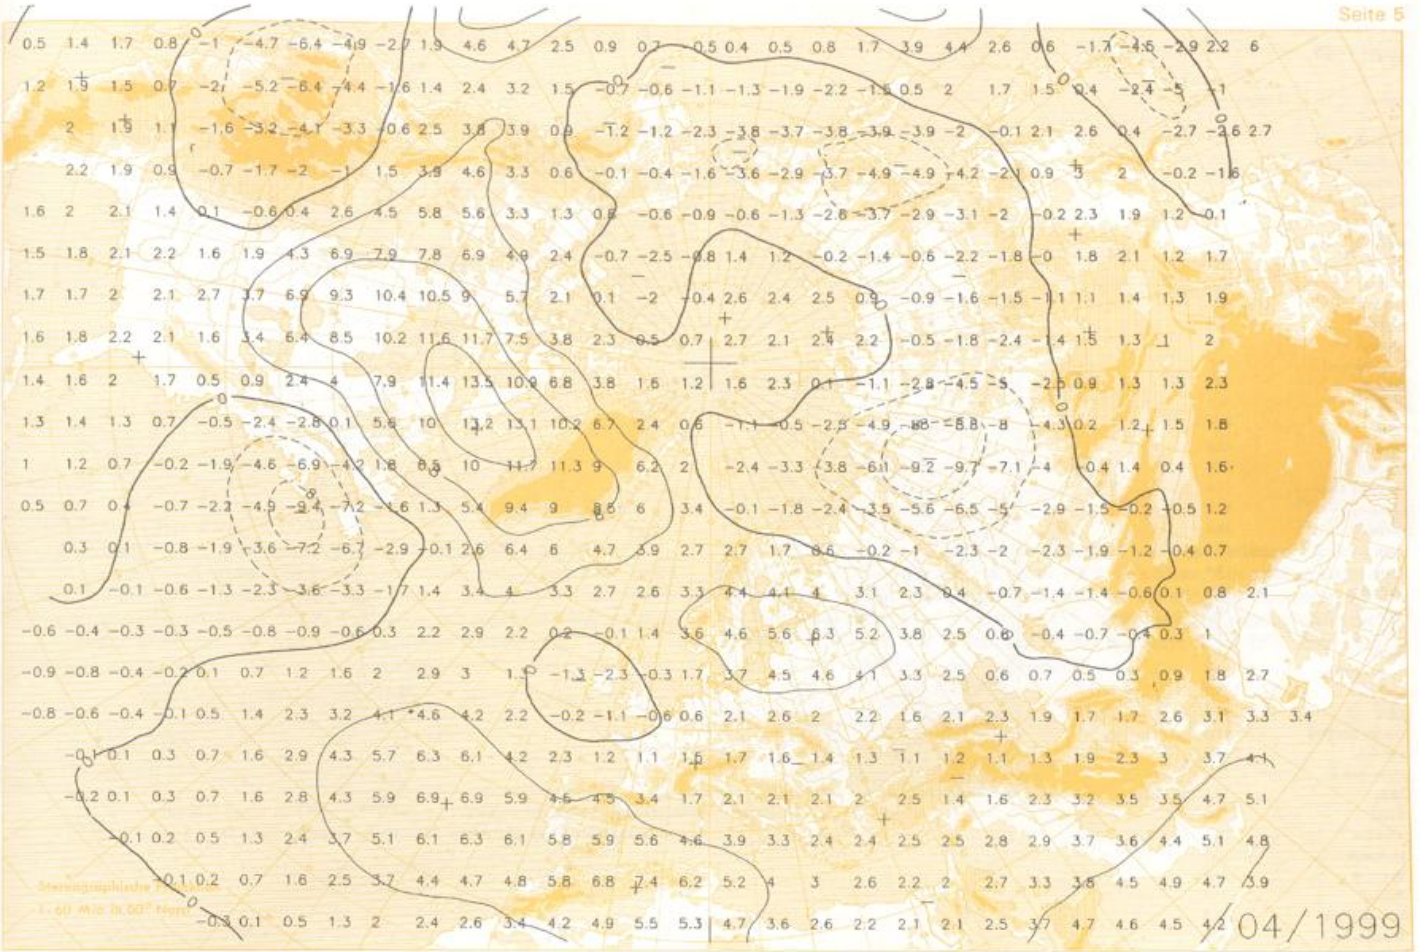 Seite 5
0.5 1.4 1.7 0.8 -1 -4.7 -6.4 -4.9 -2.7 1.9 4.6 4.7 2.5 0.9 0.7 -0.5 0.4 0.5 0.8 1.7 3.9 4.4 2.6 0.6 -1.7 -4.5 -2.9 2.2 6
1.2 1.9 1.5 0.7 -2 -5.2 -6.4 -4.4 -1.6 1.4 2.4 3.2 1.5 -0.7 -0.6 -1.1 -1.3 -1.9 -2.2 -1.5 0.5 2 1.7 1.5 0.4 -2.4 -5 -1
2 1.9 1.1 -1.6 -3.2 -4.1 -3.3 -0.6 2.5 3.8 3.9 0.9 -1.2 -1.2 -2.3 -3.8 -3.7 -3.8 -3.9 -3.9 -2 -0.1 2.1 2.6 0.4 -2.7 -2.6 2.7
2.2 1.9 0.9 -0.7 -1.7 -2 -1 1.5 3.9 4.6 3.3 0.6 -0.1 -0.4 -1.6 -3.6 -2.9 -3.7 -4.9 -4.9 -4.2 -2.1 0.9 3 2 -0.2 -1.6
1.6 2 2.1 1.4 0.1 -0.6 0.4 2.6 4.5 5.8 5.6 3.3 1.3 0.6 -0.6 -0.9 -0.6 -1.3 -2.6 -3.7 -2.9 -3.1 -2 -0.2 2.3 1.9 1.2 -0.1
1.5 1.8 2.1 2.2 1.6 1.9 4.3 6.9 7.9 7.8 6.9 4.9 2.4 -0.7 -2.5 -0.8 1.4 1.2 -0.2 -1.4 -0.6 -2.2 -1.8 -0 1.8 2.1 1.2 1.7
1.7 1.7 2 2.1 2.7 3.7 6.9 9.3 10.4 10.5 9 5.7 2.1 0.1 -2 -0.4 2.6 2.4 2.5 0.9 -0.9 -1.6 -1.5 -1.1 1.1 1.4 1.3 1.9
1.6 1.8 2.2 2.1 1.6 3.4 6.4 8.5 10.2 11.6 11.7 7.5 3.8 2.3 0.5 0.7 2.7 2.1 2.4 2.2 -0.5 -1.8 -2.4 -1.4 1.5 1.3 1 2
1.4 1.6 2 1.7 0.5 0.9 2.4 4 7.9 11.4 13.5 10.9 6.8 3.8 1.6 1.2 1.6 2.3 0.1 -1.1 -2.8 -4.5 -5 -2.5 0.9 1.3 1.3 2.3
1.3 1.4 1.3 0.7 -0.5 -2.4 -2.8 0.1 5.6 10 13.2 13.1 10.2 6.7 2.4 0.6 -1.1 -0.5 -2.5 -4.9 -8.8 -8 -4.3 0.2 1.2 1.5 1.8
1 1.2 0.7 -0.2 -1.9 -4.6 -6.9 -4.2 1.8 10 11.7 11.3 9 6.2 2 -2.4 -3.3 -3.8 -6.1 -9.2 -9.7 -7.1 -4 -0.4 1.4 0.4 1.6
0.5 0.7 0.4 -0.7 -2.2 -4.9 -9.4 -7.2 -1.6 1.3 5.4 9.4 9 8.5 6 3.4 -0.1 -1.8 -2.4 -3.5 -5.6 -6.5 -5 -2.9 -1.5 -0.2 -0.5 1.2
0.3 0.1 -0.8 -1.9 -3.6 -7.2 -6.7 -2.9 -0.1 2.6 6.4 6 4.7 3.9 2.7 2.7 1.7 0.6 -0.2 -1 -2.3 -2 -2.3 -1.9 -1.2 -0.4 0.7
0.1 -0.1 -0.6 -1.3 -2.3 -3.6 -3.3 -1.7 1.4 3.4 4 3.3 2.7 2.6 3.3 4.4 4.1 4 3.1 2.3 0.4 -0.7 -1.4 -1.4 -0.6 0.1 0.8 2.1
-0.6 -0.4 -0.3 -0.3 -0.5 -0.8 -0.9 -0.6 0.3 2.2 2.9 2.2 0.2 -0.1 1.4 3.6 4.6 5.6 6.3 5.2 3.8 2.5 0.6 -0.4 -0.7 -0.4 0.3 1
-0.9 -0.8 -0.4 -0.2 0.1 0.7 1.2 1.6 2 2.9 3 1.3 -1.3 -2.3 -0.3 1.7 3.7 4.5 4.6 4.1 3.3 2.5 0.6 0.7 0.5 0.3 0.9 1.8 2.7
-0.8 -0.6 -0.4 -0.1 0.5 1.4 2.3 3.2 4.1 4.6 4.2 2.2 -0.2 -1.1 -0.6 0.6 2.1 2.6 2 2.2 1.6 2.1 2.3 1.9 1.7 1.7 2.6 3.1 3.3 3.4
-0.1 0.1 0.3 0.7 1.6 2.9 4.3 5.7 6.3 6.1 4.2 2.3 1.2 1.1 1.5 1.7 1.6 1.4 1.3 1.1 1.2 1.1 1.3 1.9 2.3 3 3.7 4.1
-0.2 0.1 0.3 0.7 1.6 2.8 4.3 5.9 6.9 6.9 5.9 4.6 4.5 3.4 1.7 2.1 2.1 2.1 2 2.5 1.4 1.6 2.3 3.2 3.5 3.5 4.7 5.1
-0.1 0.2 0.5 1.3 2.4 3.7 5.1 6.1 6.3 6.1 5.8 5.9 5.6 4.6 3.9 3.3 2.4 2.4 2.5 2.5 2.8 2.9 3.7 3.6 4.4 5.1 4.8
-0.1 0.2 0.7 1.6 2.5 3.7 4.4 4.7 4.8 5.8 6.8 7.4 6.2 5.2 4 3 2.6 2.2 2 2.7 3.3 3.8 4.5 4.9 4.7 3.9
Stereographische
-0.3 0.1 0.5 1.3 2 2.4 2.6 3.4 4.2 4.9 5.5 5.3 4.7 3.6 2.6 2.2 2.1 2.1 2.5 3.7 4.7 4.6 4.5 4.2
04/1999